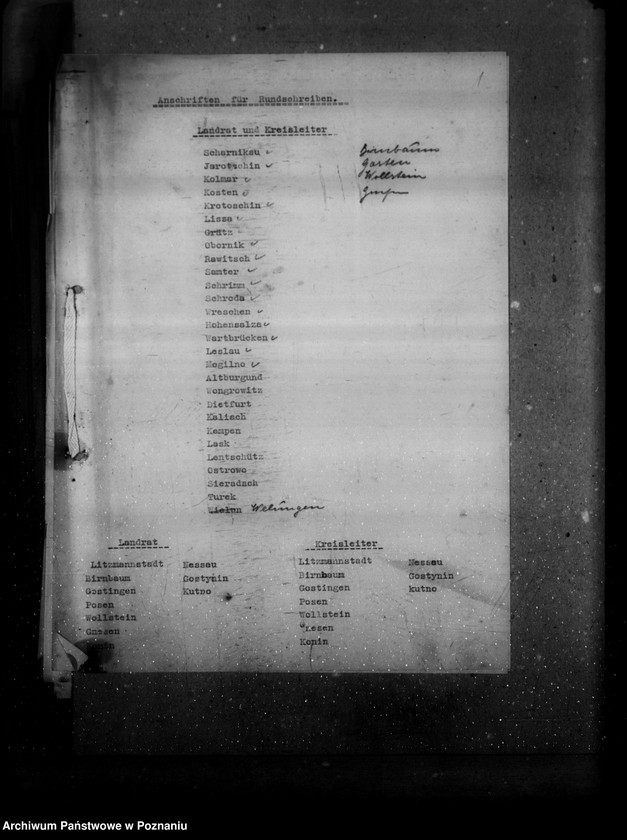 1
Anschriften für Rundschreiben.
Landrat und Kreisleiter
Scharnikau
Birnbaum
Jarotschin
Garten
Kolmar
Wollstein
Kosten
Krotoschin
Lissa
Grätz
Obornik
Rawitsch
Samter
Schrimm
Schroda
Wreschen
Hohensalza
Wartbrücken
Leslau
Mogilno
Altburgund
Wongrowitz
Dietfurt
Kalisch
Kempen
Lask
Lentschütz
Ostrowo
Sieradsch
Turek
Wielun Welungen
Landrat
Litzmannstadt Nessau
Birnbaum Gostynin
Gostingen Kutno
Posen
Wollstein
Gnesen
Kreisleiter
Litzmannstadt Nessau
Birnbaum Gostynin
Gostingen kutno
Posen
Wollstein
Konin
Archiwum Państwowe w Poznaniu